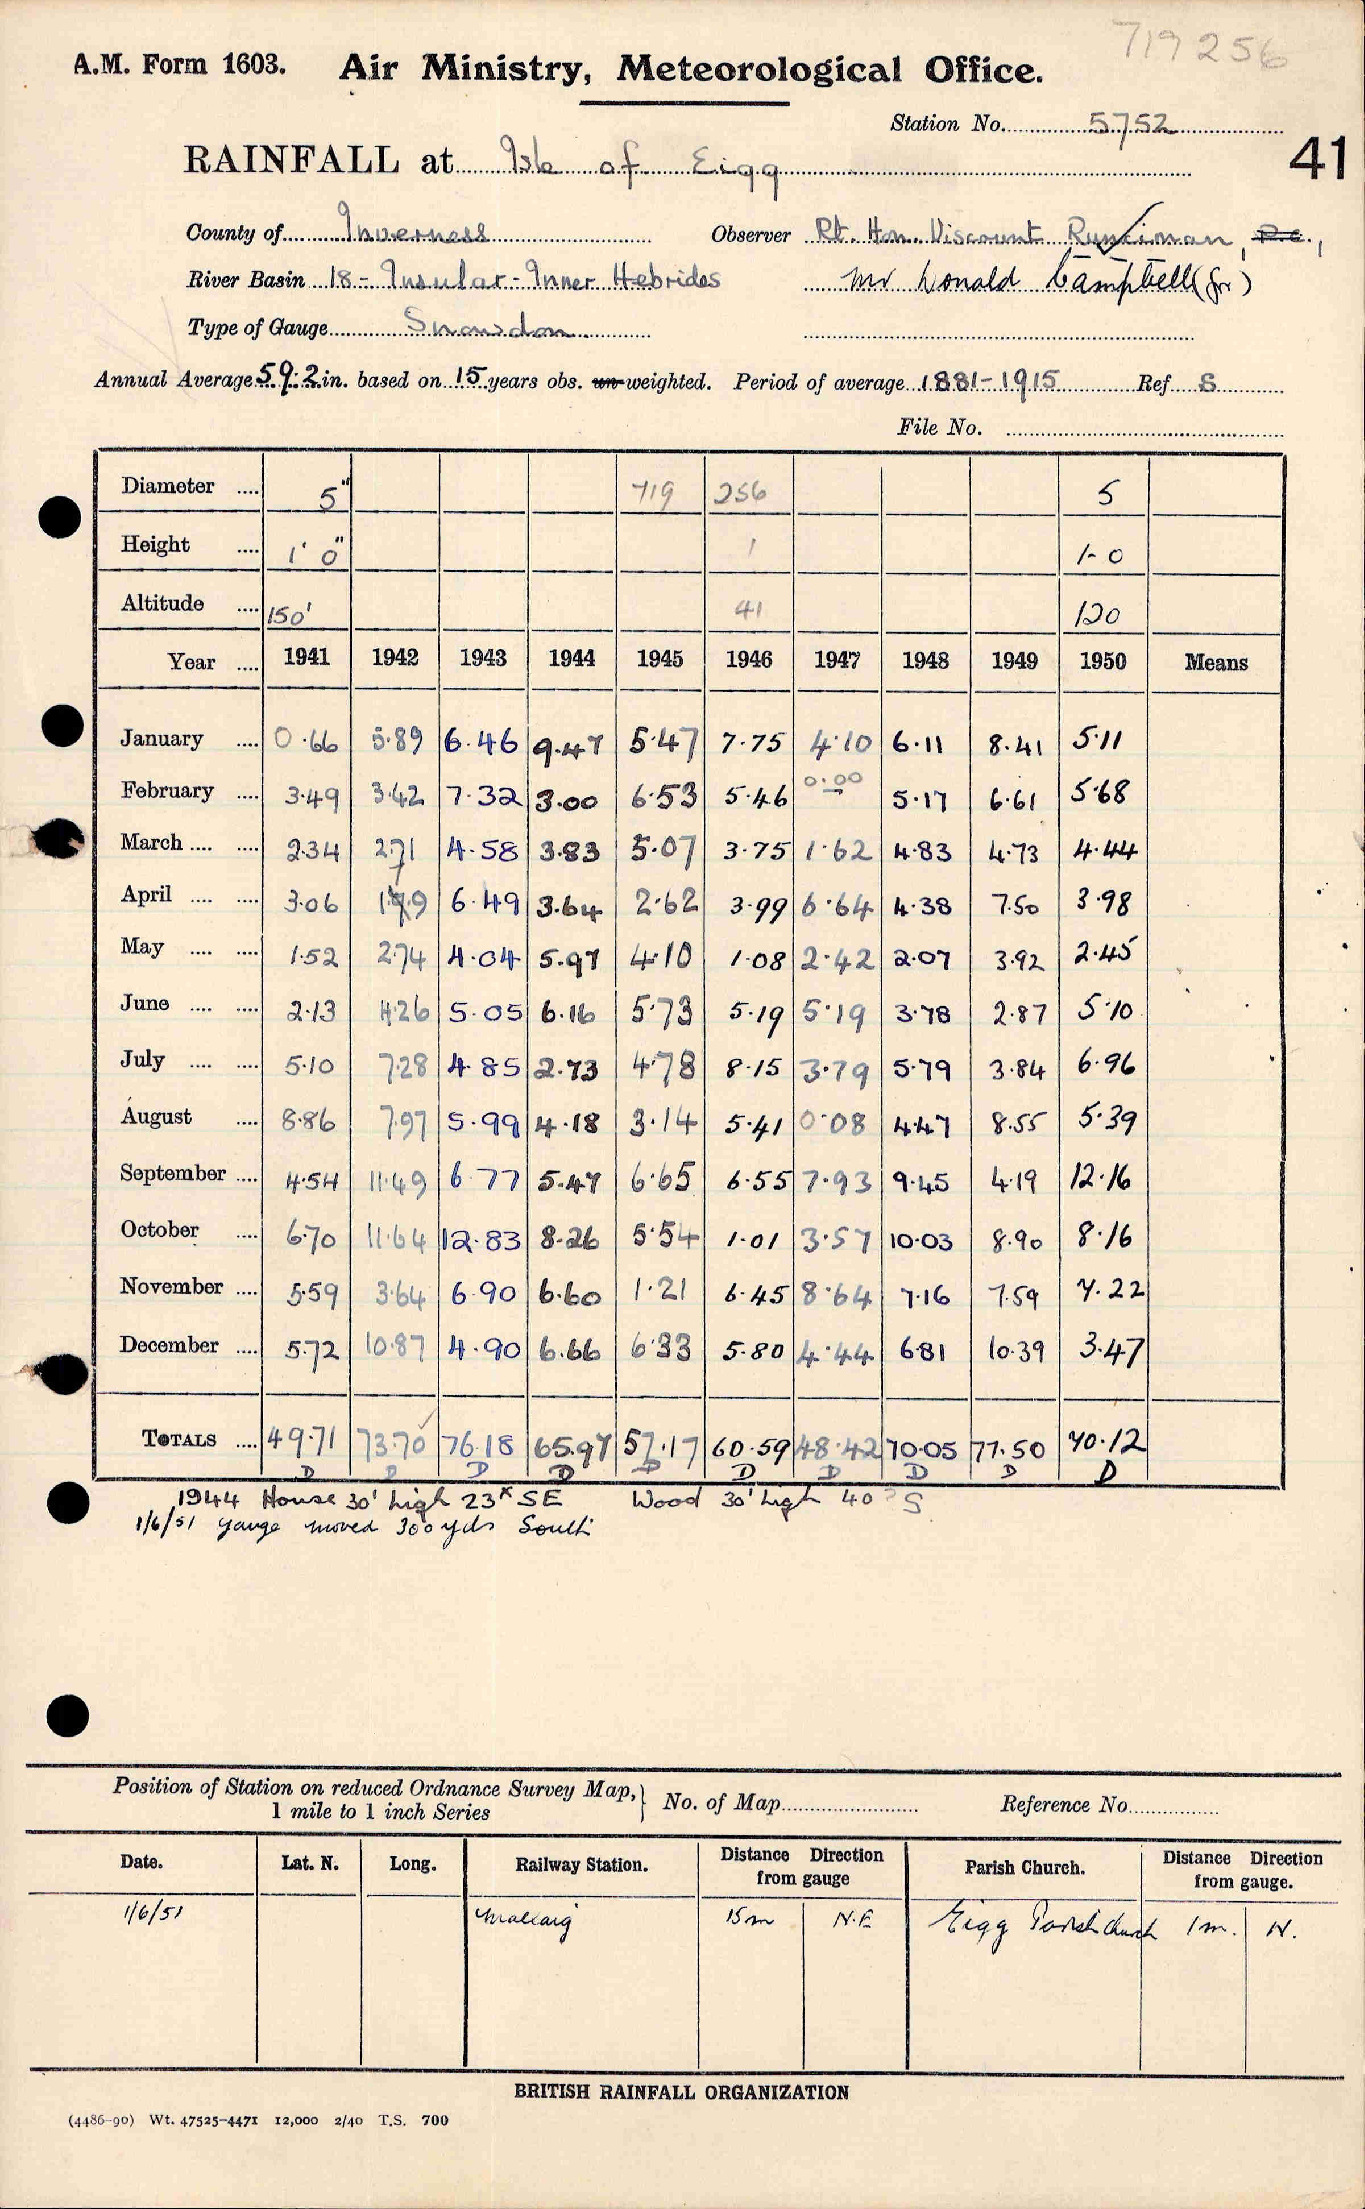 719256
A.M. Form 1603. Air Ministry, Meteorological Office.
Station No. 5752
41
RAINFALL at Isle of Eigg
County of Inverness Observer Rt. Hon. Viscount Runciman, P.C.,
River Basin 18 - Insular - Inner Hebrides Mr Donald Campbell (Jnr)
Type of Gauge Snowdon
Annual Average 59.2 in. based on 15 years obs. un-weighted. Period of average 1881-1915 Ref S
File No.
Diameter .... 5" 719 256 5
Height .... 1' 0" 1 1-0
Altitude .... 150' 41 120
Year .... 1941 1942 1943 1944 1945 1946 1947 1948 1949 1950 Means
January .... 0.66 5.89 6.46 9.47 5.47 7.75 4.10 6.11 8.41 5.11
February .... 3.49 3.42 7.32 3.00 6.53 5.46 0.00 5.17 6.61 5.68
March .... .... 2.34 2.71 4.58 3.83 5.07 3.75 1.62 4.83 4.73 4.44
April .... .... 3.06 1.79 6.49 3.64 2.62 3.99 6.64 4.38 7.50 3.98
May .... .... 1.52 2.74 4.04 5.97 4.10 1.08 2.42 2.07 3.92 2.45
June .... .... 2.13 4.26 5.05 6.16 5.73 5.19 5.19 3.78 2.87 5.10
July .... .... 5.10 7.28 4.85 2.73 4.78 8.15 3.79 5.79 3.84 6.96
August .... 8.86 7.97 5.99 4.18 3.14 5.41 0.08 4.47 8.55 5.39
September .... 4.54 11.49 6.77 5.47 6.65 6.55 7.93 9.45 4.19 12.16
October .... 6.70 11.64 12.83 8.26 5.54 1.01 3.57 10.03 8.90 8.16
November .... 5.59 3.64 6.90 6.60 1.21 6.45 8.64 7.16 7.59 7.22
December .... 5.72 10.87 4.90 6.66 6.33 5.80 4.44 6.81 10.39 3.47
TOTALS .... 49.71 73.70 76.18 65.97 57.17 60.59 48.42 70.05 77.50 70.12
D D D D D D D D D D
1944 House 30' high 23x SE Wood 30' high 40 S
1/6/51 gauge moved 300 yds South
Position of Station on reduced Ordnance Survey Map,
1 mile to 1 inch Series
No. of Map Reference No.
Date. Lat. N. Long. Railway Station. Distance Direction from gauge Parish Church. Distance Direction from gauge.
1/6/51 Mallaig 15m N.E Eigg Parish church 1m. N.
BRITISH RAINFALL ORGANIZATION
(4486-90) Wt. 47525-4471 12,000 2/40 T.S. 700